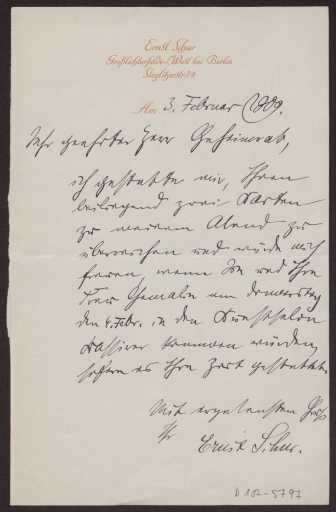 Ernst Schur
Großlichterfelde-West bei Berlin
Steglitzerstr. 24
Am 3. Februar 1909.
Sehr geehrter Herr Geheimrat,
ich gestatte mir, Ihnen
beiliegend zwei Karten
zu meinem Abend zu
überreichen und würde mich
freuen, wenn Sie und Ihre
Frau Gemalin am Donnerstag
den 4. Febr. in den Kunstsalon
Cassirer kommen würden,
sofern es Ihre Zeit gestattet.
Mit ergebenstem Gruß
Ihr
Ernst Schur.
D 182-5797